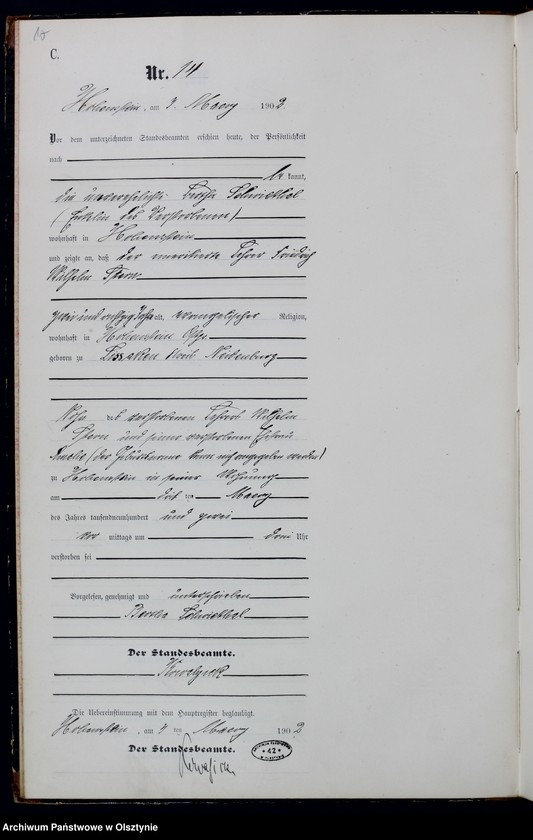 C.
Nr. 14
Hohenstein, am 3. Maerz 1902.
Vor dem unterzeichneten Standesbeamten erschien heute, der Persönlichkeit
nach
be kannt,
die unverehelichte Bertha
(Enkelin des Verstorbenen)
wohnhaft in Hohenstein
und zeigte an, daß der emeritirte Lehrer Friedrich
Wilhelm Stern
zwei und achtzig Jahre alt, evangelischer Religion,
wohnhaft in Hohenstein Ostpr.
geboren zu Kreis Neidenburg
Sohn des verstorbenen Lehrers Wilhelm
Stern und seiner verstorbenen Ehefrau
Amalie (der Geburtsname kann nicht angegeben werden)
zu Hohenstein in seiner Wohnung
am drit ten Maerz
des Jahres tausendneunhundert und zwei
vor mittags um drei Uhr
verstorben sei
Vorgelesen, genehmigt und unterschrieben
Bertha
Der Standesbeamte.
Die Uebereinstimmung mit dem Hauptregister beglaubigt.
Hohenstein, am 3 ten Maerz 1902
Der Standesbeamte.
ARCHIWUM PAŃSTWOWE
* 42 *
W OLSZTYNIE
Archiwum Państwowe w Olsztynie